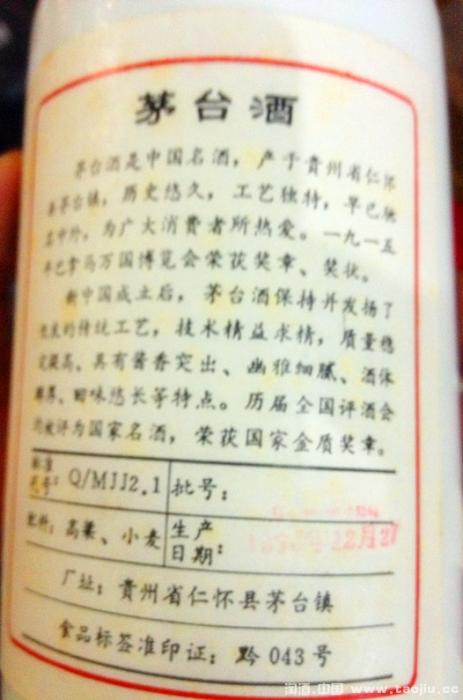 茅台酒
茅台酒是中国名酒，产于贵州省仁怀
县茅台镇，历史悠久，工艺独特，早已驰
名中外，为广大消费者所热爱。一九一五
年巴拿马万国博览会荣获奖章、奖状。
新中国成立后，茅台酒保持并发扬了
的传统工艺，技术精益求精，质量稳
定提高、具有酱香突出、幽雅细腻、酒体
醇厚、回味悠长等特点。历届全国评酒会
均被评为国家名酒，荣获国家金质奖章。
标准
代号：Q/MJJ2.1 批号：
配料：高粱、小麦 生产
日期： 12月27
厂址：贵州省仁怀县茅台镇
食品标签准印证：黔043号
淘酒.中国 www.taojiu.cc